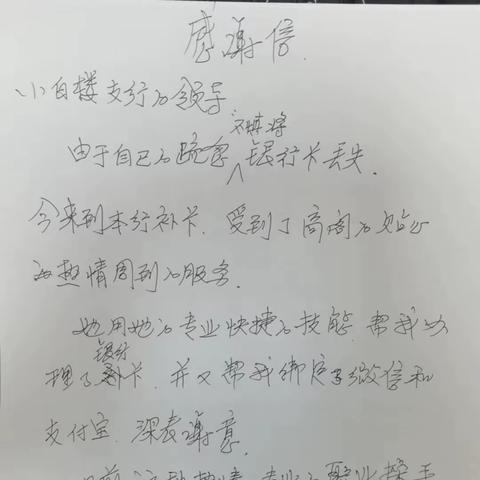 感谢信
小白楼支行的领导
由于自己的疏忽不慎将银行卡丢失.
今来到本行补卡.受到了高阁的
的热情周到的服务.
她用她的专业快捷的技能.帮我办
理了银行补卡.并又帮我绑定了微信和
支付宝.深表谢意.